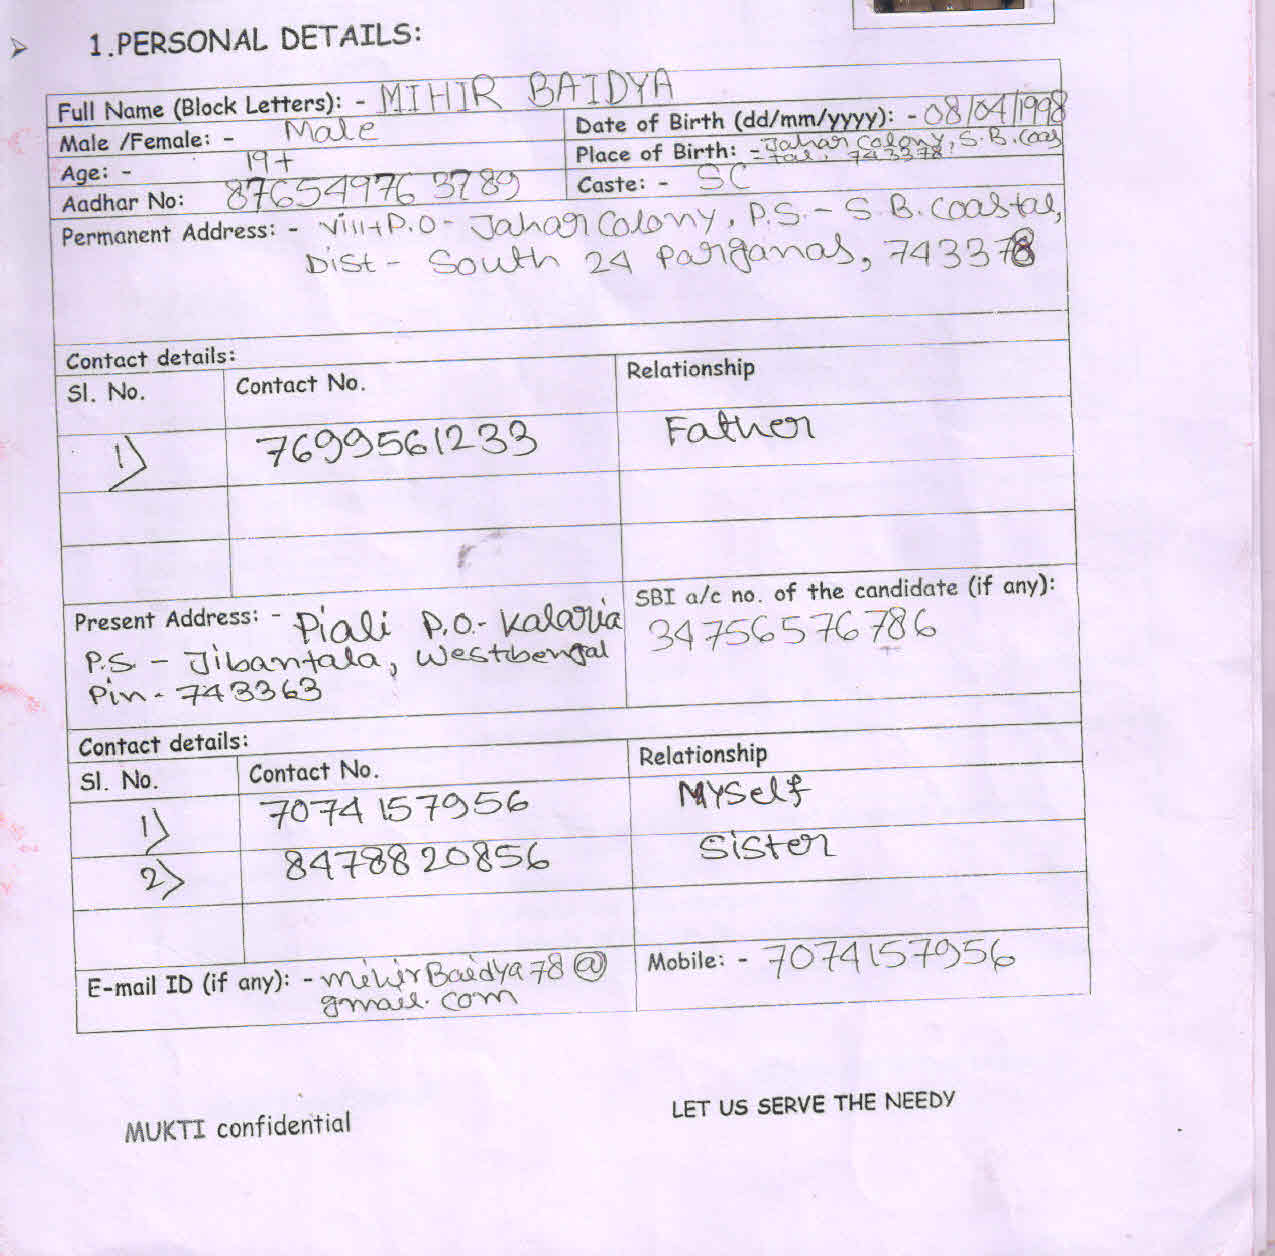 1.PERSONAL DETAILS:
Full Name (Block Letters): - MIHIR BAIDYA
Male /Female: - Male
Date of Birth (dd/mm/yyyy): - 08/04/1998
Age: - 19+
Place of Birth: - Jahar Colony, S.B. Coas
tal, 743378
Aadhar No: 876549763789
Caste: - SC
Permanent Address: - vill+P.O- Jahar Colony, P.S.- S.B. Coastal,
Dist- South 24 Parganas, 743378
Contact details:
Sl. No. Contact No. Relationship
1) 7699561233 Father
Present Address: - Piali P.O.- Kalaria
P.S. - Jibantala, Westbengal
Pin- 743363
SBI a/c no. of the candidate (if any):
34756576786
Contact details:
Sl. No. Contact No. Relationship
1) 7074157956 Myself
2) 8478820856 Sister
E-mail ID (if any): - mihirBaidya78@
gmail.com
Mobile: - 7074157956
MUKTI confidential
LET US SERVE THE NEEDY